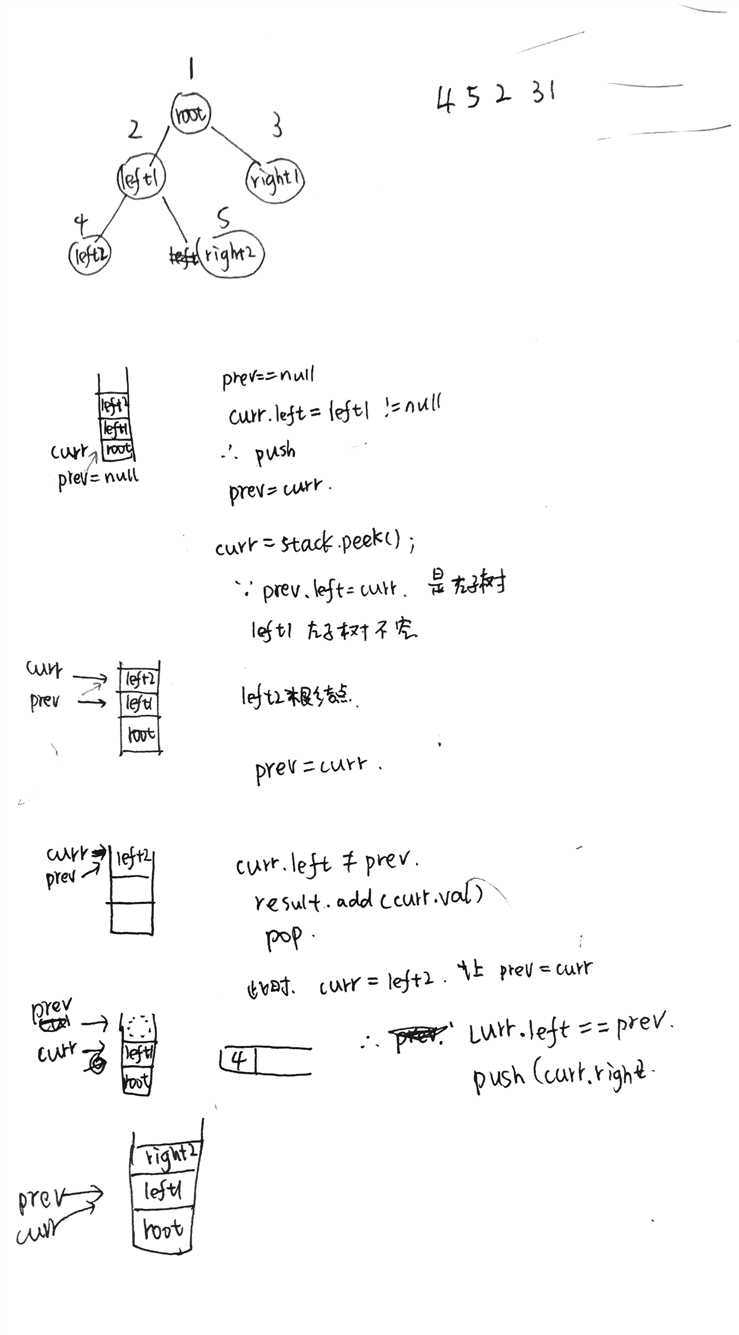 1
root
4 5 2 3 1
2
3
left1
right1
4
5
left2
right2
prev==null
left2
curr.left = left1 != null
left1
curr
root
∴ push
prev=null
prev=curr.
curr = stack.peek();
∵ prev.left=curr. 是左子树
left1 左子树不空
curr
left2
prev
left1
left2 根结点.
root
prev = curr.
curr
left2
curr.left ≠ prev.
prev
result.add(curr.val)
pop.
此时. curr = left2. 让 prev = curr
prev
∴ curr.left == prev.
curr
left1
4
root
push(curr.right
right2
prev
left1
curr
root